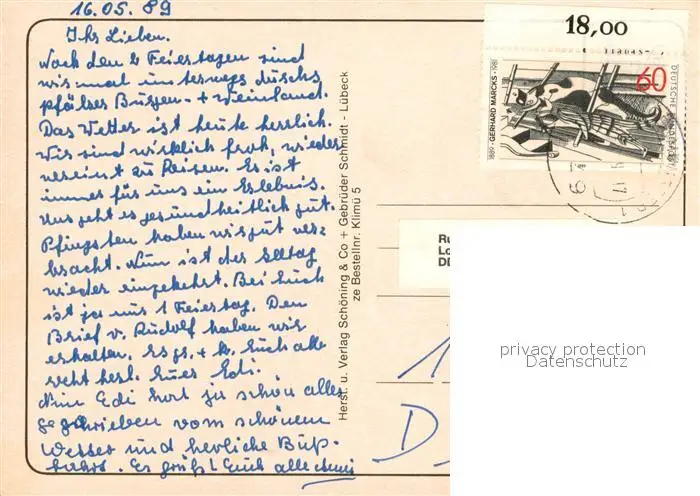 16.05.89
Ihr Lieben.
Nach den 2 Feiertagen sind
wir mal unterwegs durchs
pfälzer Burgen- + Weinland.
Das Wetter ist heute herrlich.
Wir sind wirklich froh, wieder
vereint zu Reisen. Es ist
immer für uns ein Erlebnis.
Uns geht es gesundheitlich gut.
Pfingsten haben wir gut ver=
bracht. Nun ist der Alltag
wieder eingekehrt. Bei Euch
ist ja nur 1 Feiertag. Den
Brief v. Rudolf haben wir
erhalten. Es gr. + k. Euch alle
recht herzl. Euer Edi.
Nun Edi hat ja schon alles
geschrieben vom schönen
Wetter und herrliche Bus=
fahrt. Es grüßt Euch alle
Herst. u. Verlag Schöning & Co + Gebrüder Schmidt - Lübeck
ze Bestellnr. Klimü 5
18,00
60
1889 · GERHARD MARCKS · 1981
DEUTSCHE
Ru
Lo
DD
1
D
privacy protection
Datenschutz